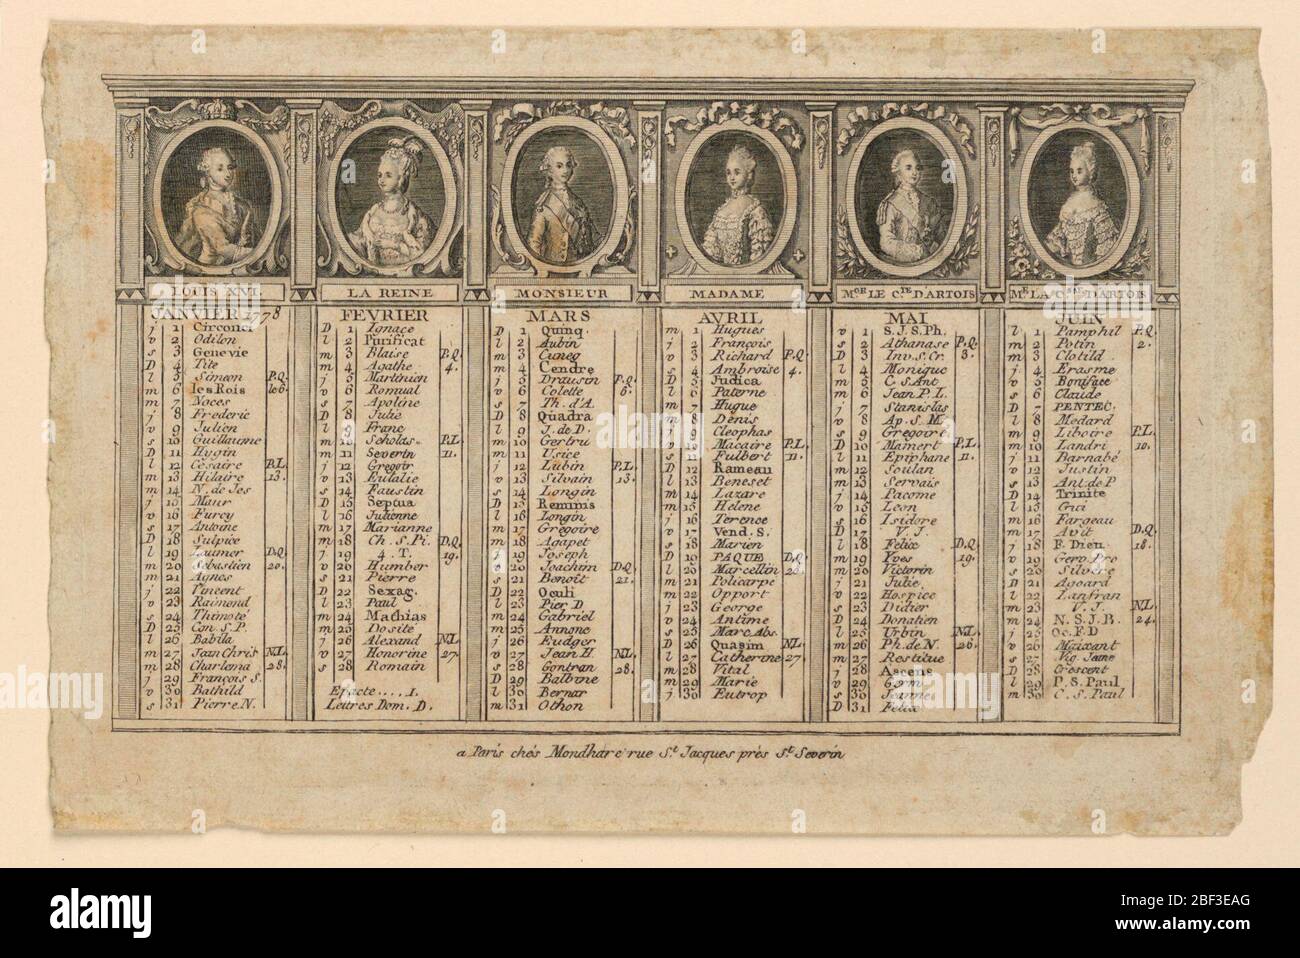 LOUIS XVI.
JANVIER 1778
j 1 Circonci
v 2 Odilon
s 3 Genevie
D 4 Tite
l 5 Simeon P.Q.
m 6 les Rois le 6.
m 7 Noces
j 8 Frederic
v 9 Julien
s 10 Guillaume
D 11 Hygin
l 12 Césaire P.L.
m 13 Hilaire 13.
m 14 N. de Jes
j 15 Maur
v 16 Furcy
s 17 Antoine
D 18 Sulpice
l 19 Laumer D.Q.
m 20 Sébastien 20.
m 21 Agnes
j 22 Vincent
v 23 Raimond
s 24 Thimoté
D 25 Con. S. P.
l 26 Babila
m 27 Jean Chris N.L.
m 28 Charlema 28.
j 29 François S.
v 30 Bathild
s 31 Pierre N.
LA REINE
FÉVRIER
D 1 Ignace
l 2 Purificat
m 3 Blaise P.Q.
m 4 Agathe 4.
j 5 Martinien
v 6 Romual
s 7 Apoline
D 8 Julie
l 9 Franc
m 10 Scholas P.L.
m 11 Severin 11.
j 12 Gregoir
v 13 Eulalie
s 14 Faustin
D 15 Septua
l 16 Julienne
m 17 Marianne
m 18 Ch. S. Pi. D.Q.
j 19 4. T. 19.
v 20 Humber
s 21 Pierre
D 22 Sexag.
l 23 Paul
m 24 Mathias
m 25 Dosité
j 26 Alexand N.L.
v 27 Honorine 27.
s 28 Romain
Epacte .... 1.
Leitres Dom. D.
MONSIEUR
MARS
D 1 Quinq.
l 2 Aubin
m 3 Cuneg
m 4 Cendre
j 5 Drausin P.Q.
v 6 Colette 6.
s 7 Th. d'A.
D 8 Quadra
l 9 J. de D.
m 10 Gertru
m 11 Usice
j 12 Lubin P.L.
v 13 Silvain 13.
s 14 Longin
D 15 Reminis
l 16 Longin
m 17 Gregoire
m 18 Agapet
j 19 Joseph
v 20 Joachim D.Q.
s 21 Benoît 21.
D 22 Oculi
l 23 Pier D
m 24 Gabriel
m 25 Annonc
j 26 Eudger
v 27 Jean H. N.L.
s 28 Gontran 28.
D 29 Balbine
l 30 Bernar
m 31 Othon
MADAME
AVRIL
m 1 Hugues
j 2 François
v 3 Richard P.Q.
s 4 Ambroise 4.
D 5 Judica
l 6 Paterne
m 7 Hugue
m 8 Denis
j 9 Cleophas
v 10 Macaire P.L.
s 11 Fulbert 11.
D 12 Rameau
l 13 Beneset
m 14 Lazare
m 15 Helene
j 16 Terence
v 17 Vend. S.
s 18 Marien
D 19 PAQUE D.Q.
l 20 Marcellin 20.
m 21 Policarpe
m 22 Opport
j 23 George
v 24 Antime
s 25 Marc Abs.
D 26 Quasim N.L.
l 27 Catherine 27
m 28 Vital
m 29 Marie
j 30 Eutrop
MGR LE CTE D'ARTOIS
MAI
v 1 S. J. S. Ph.
s 2 Athanase P.Q.
D 3 Inv. S. Cr. 3.
l 4 Monique
m 5 C. S Ant.
m 6 Jean P. L.
j 7 Stanislas
v 8 Ap. S. M.
s 9 Gregoire
D 10 Mamert P.L.
l 11 Epiphane 11.
m 12 Soulan
m 13 Servais
j 14 Pacome
v 15 Leon
s 16 Isidore
D 17 V. J.
l 18 Felix D.Q.
m 19 Yves 19.
m 20 Victorin
j 21 Julie
v 22 Hospice
s 23 Didier
D 24 Donatien
l 25 Urbin N.L.
m 26 Ph. de N. 26.
m 27 Restitue
j 28 Ascens
v 29 Germ
s 30 Jeanne
D 31 Felix
ME LA CSSE D'ARTOIS
JUIN
l 1 Pamphil P.Q.
m 2 Potin 2.
m 3 Clotild
j 4 Erasme
v 5 Boniface
s 6 Claude
D 7 PENTEC.
l 8 Medard
m 9 Liboire P.L.
m 10 Landri 10.
j 11 Barnabé
v 12 Justin
s 13 Ant. de P
D 14 Trinite
l 15 Gui
m 16 Fargeau
m 17 Avit D.Q.
j 18 F. Dieu 18.
v 19 Gerv. Pro
s 20 Silvere
D 21 Agoard
l 22 Lanfran
m 23 V. J. N.L.
m 24 N. S. J. B. 24.
j 25 Oc. F. D
v 26 Maixant
s 27 Vig. Jeune
D 28 Crescent
l 29 P. S. Paul
m 30 C. S. Paul
a Paris chés Mondhare rue St. Jacques près St. Severin
alamy
Image ID: 2BF3EAG
www.alamy.com